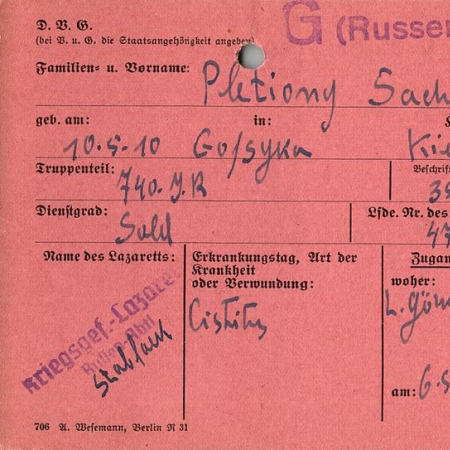 D. V. G.
G (Russen
(bei V. u. G. die Staatsangehörigkeit angeben)
Familien- u. Vorname:
Pletiony Sach
geb. am: in:
10.5.10
Truppenteil:
740. J.R
Beschrift
Dienstgrad:
Sold
Lfde. Nr. des
47
Name des Lazaretts:
Erkrankungstag, Art der
Krankheit
oder Verwundung:
Zugan
woher:
Kriegsgef.-Lazaret
am: 6.5
706 A. Wesemann, Berlin N 31